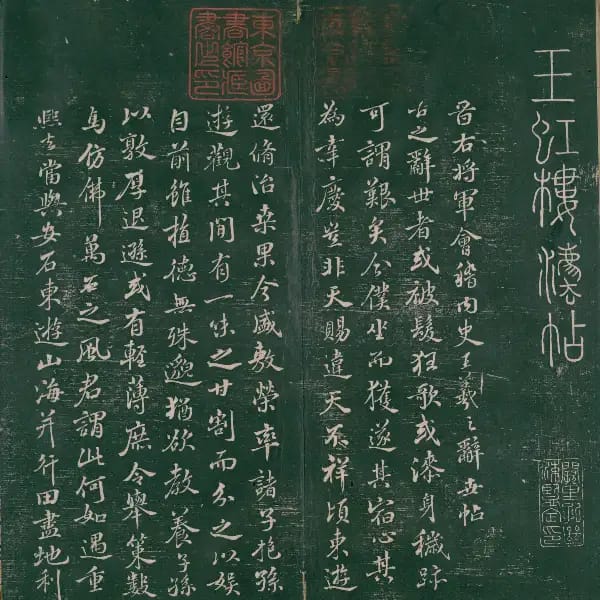 玉虹樓灋帖
晉右將軍會稽內史王羲之辭世帖
古之辭世者或被髮狂歌或漆身穢跡
可謂艱矣今僕坐而獲遂其宿心其
為幸慶豈非天賜違天不祥頃東遊
還脩治桑果今盛敷榮率諸子抱孫
遊觀其間有一味之甘割而分之以娛
目前雖植德無殊邈猶欲教養子孫
以敦厚退遜或有輕薄庶令舉策數
馬仿佛萬石之風君謂此何如遇重
熙去當與安石東遊山海并行田盡地利
東京圖
書館藏
書之印